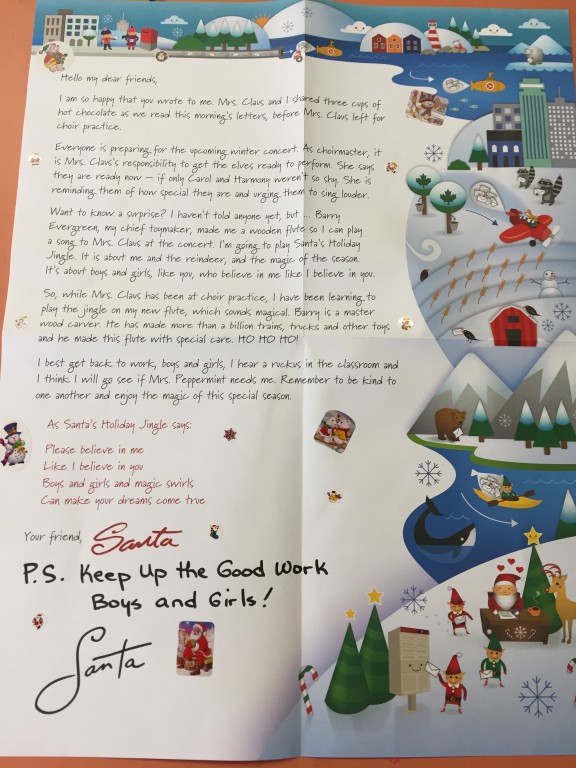 Hello my dear friends,
I am so happy that you wrote to me. Mrs. Claus and I shared three cups of
hot chocolate as we read this morning's letters, before Mrs. Claus left for
choir practice.
Everyone is preparing for the upcoming winter concert. As choirmaster, it
is Mrs. Claus's responsibility to get the elves ready to perform. She says
they are ready now – if only Carol and Harmony weren't so shy. She is
reminding them of how special they are and urging them to sing louder.
Want to know a surprise? I haven't told anyone yet, but ... Barry
Evergreen, my chief toymaker, made me a wooden flute so I can play
a song to Mrs. Claus at the concert. I'm going to play Santa's Holiday
Jingle. It is about me and the reindeer, and the magic of the season.
It's about boys and girls, like you, who believe in me like I believe in you.
So, while Mrs. Claus has been at choir practice, I have been learning to
play the jingle on my new flute, which sounds magical. Barry is a master
wood carver. He has made more than a billion trains, trucks and other toys
and he made this flute with special care. HO HO HO!
I best get back to work, boys and girls, I hear a ruckus in the classroom and
I think I will go see if Mrs. Peppermint needs me. Remember to be kind to
one another and enjoy the magic of this special season.
As Santa's Holiday Jingle says:
Please believe in me
Like I believe in you
Boys and girls and magic swirls
Can make your dreams come true
Your friend, Santa
P.S. Keep Up the Good Work
Boys and Girls!
Santa